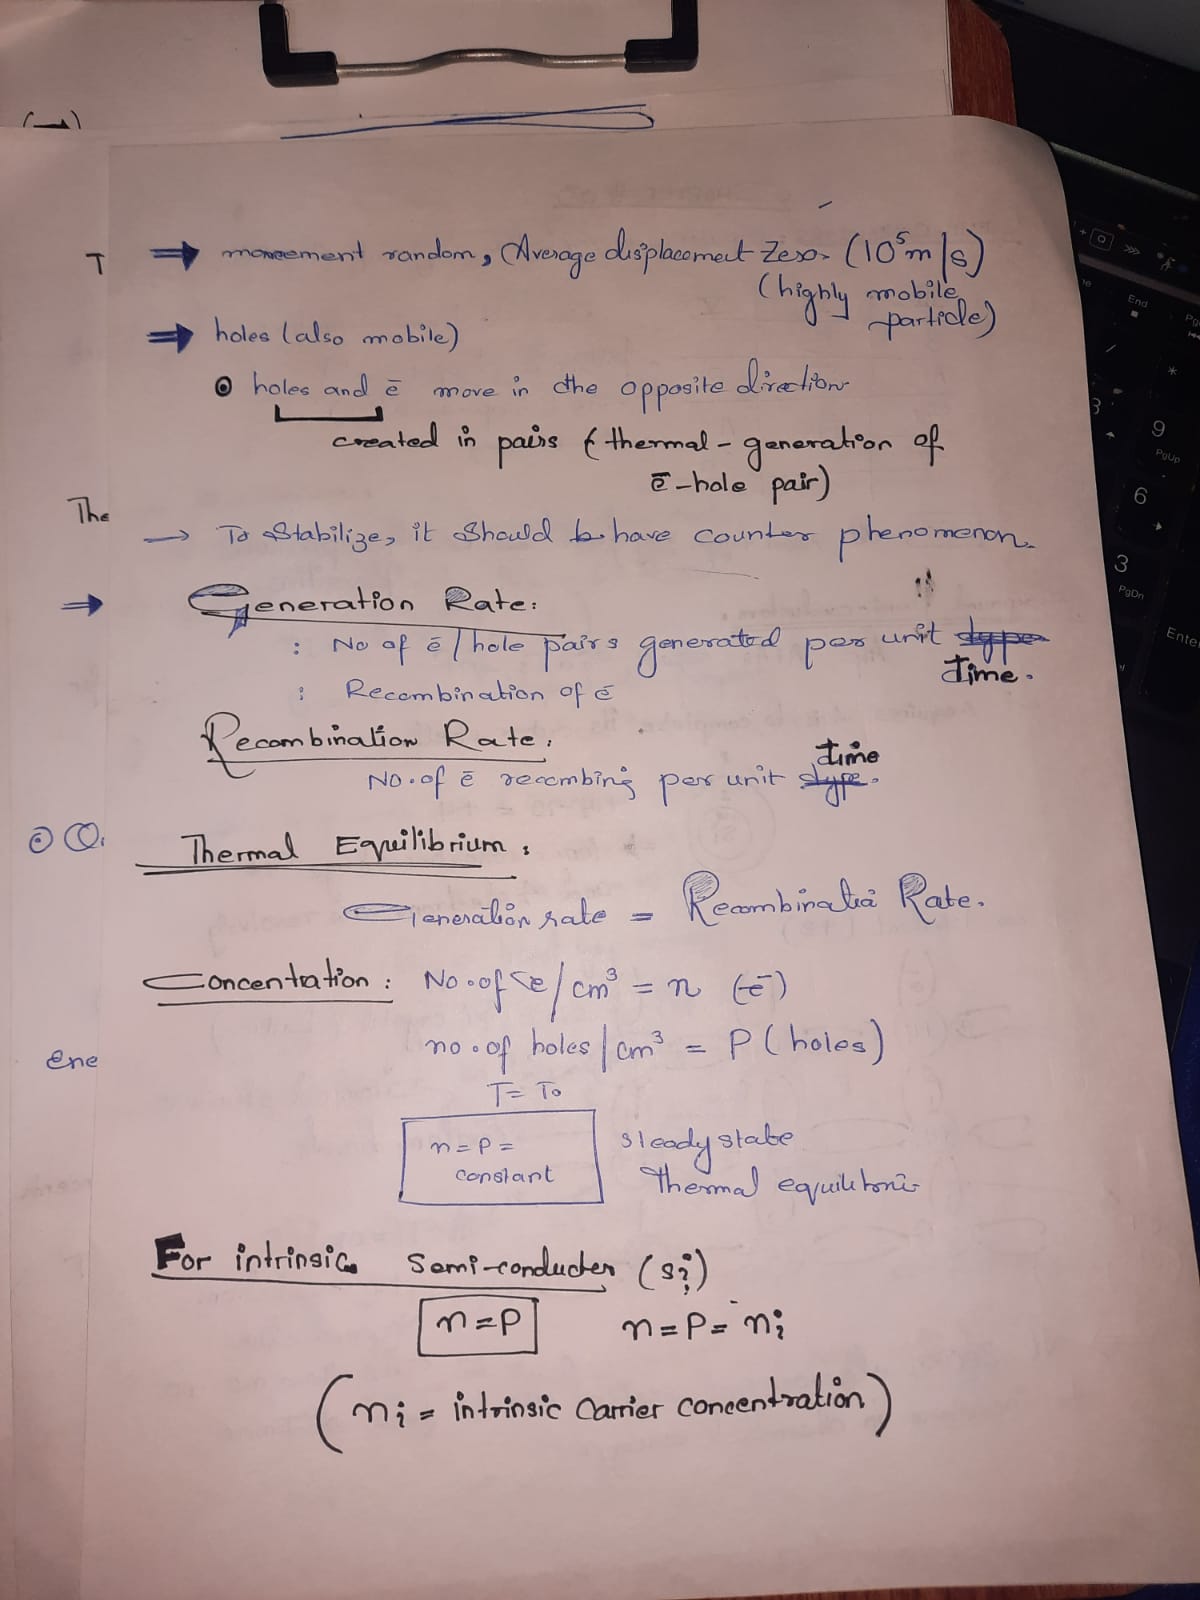 T ⇒ movement random, (Average displacement Zero. (10⁵m/s)
(highly mobile
particle)
⇒ holes (also mobile)
⊙ holes and ē move in the opposite direction
created in pairs (thermal-generation of
ē-hole pair)
The
→ To Stabilize, it should have counter phenomenon.
⇒ Generation Rate:
: No of ē/hole pairs generated per unit type
time.
: Recombination of ē
Recombination Rate:
time
No. of ē recombing per unit type.
Thermal Equilibrium:
Generation rate = Recombination Rate.
Concentration: No. of /cm³ = n (ē)
no. of holes/cm³ = P (holes)
ene
T = To
n = P = steady state
constant Thermal
For intrinsic Semi-conducter (Si)
n = P n = P = ni
(ni = intrinsic Carrier Concentration)
End
9
PgUp
6
3
PgDn
Enter